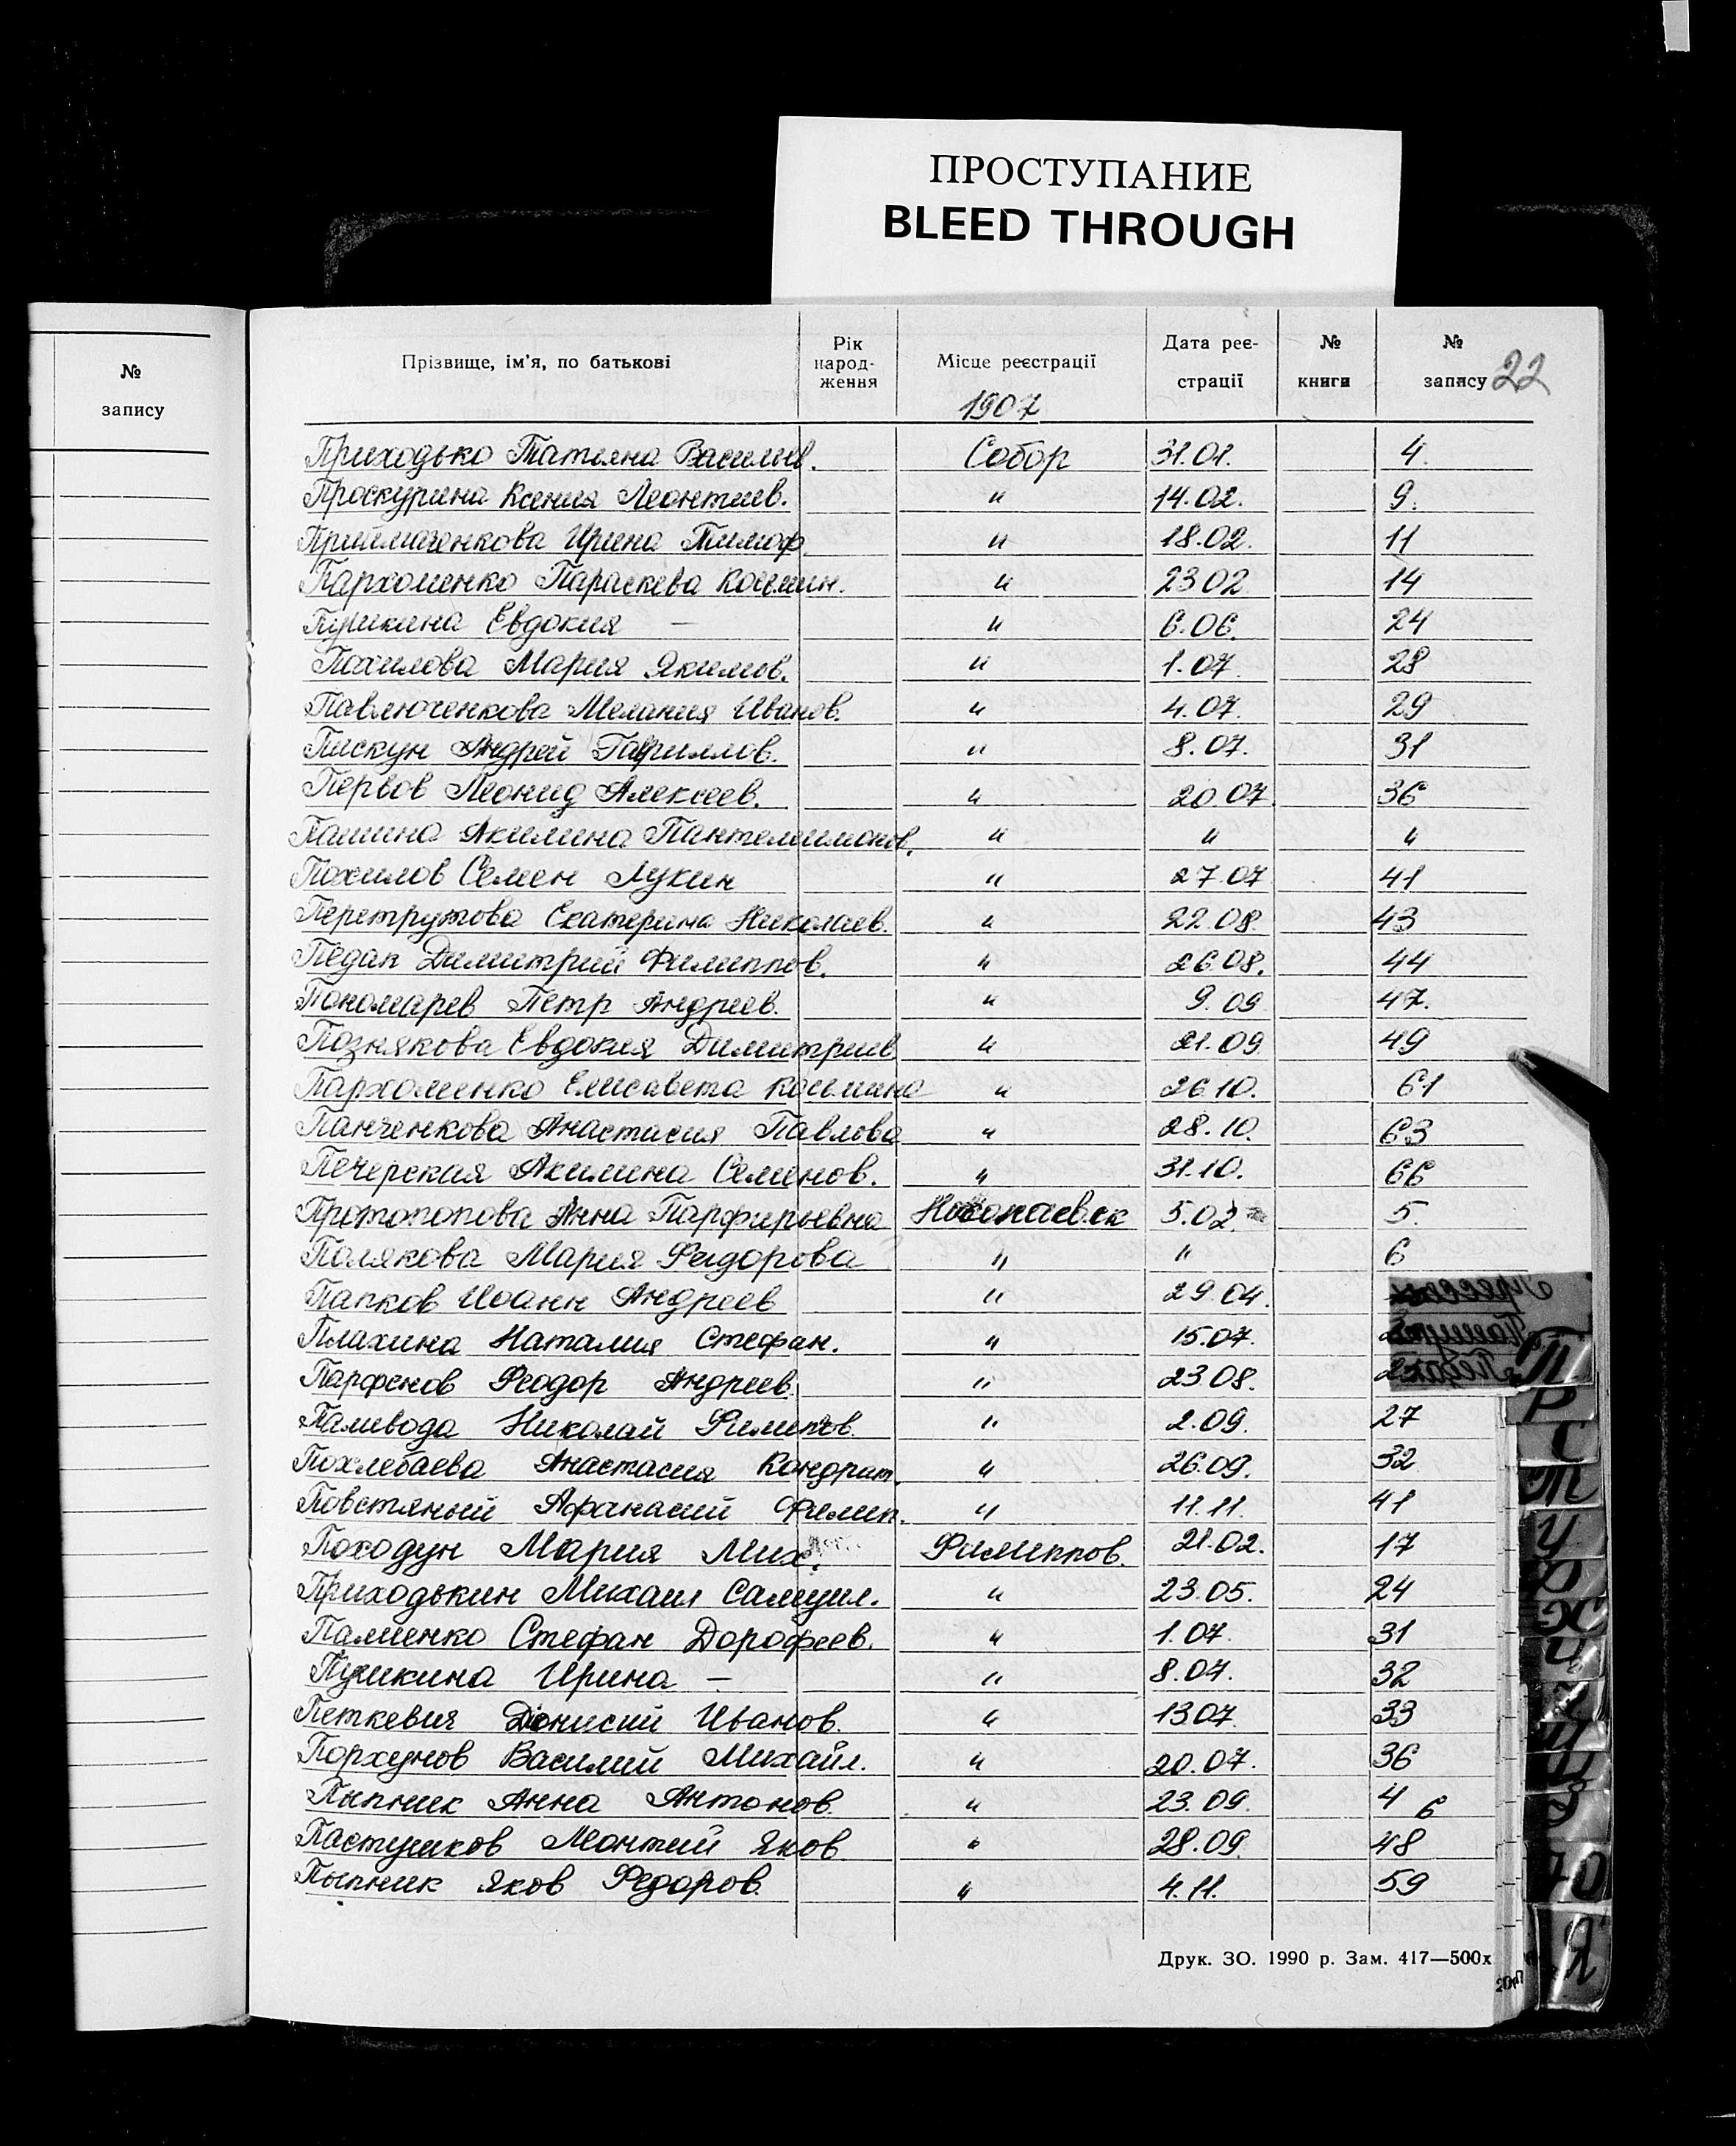 ПРОСТУПАНИЕ
BLEED THROUGH
№ запису
Прізвище, ім'я, по батькові Рік народ-ження Місце реєстрації Дата реє-страції № книги № запису 22
1907
Приходько Татьяна Васильев. Собор 31.01. 4.
Проскурина Ксения Леонтиев. " 14.02. 9.
Ирина Тимоф " 18.02. 11
Пархоменко Параскева Косьмин. " 23 02 14
Пушкина Евдокия — " 6.06. 24
Похилова Мария Якимов. " 1.07. 28
Павлюченкова Мелания Иванов. " 4.07. 29
Пискун Андрей Гавриилов. " 8.07. 31
Первов Леонид Алексеев. " 20 07. 36
Пашина Акилина Пантелеимонов. " " "
Похилов Семен Лукин " 27.07 41
Перетрутова Екатерина Николаев. " 22.08. 43
Педак Димитрий Филиппов. " 26.08. 44
Пономарев Петр Андреев. " 9.09 47.
Познякова Евдокия Димитриев " 21.09. 49
Пархоменко Елисавета Косьмина " 26.10. 61
Панченкова Анастасия Павлова " 28.10. 63
Печерская Акилина Семенов. " 31.10. 66
Протопопова Анна Парфирьевна 5.02 5.
Полякова Мария Феодорова " " 6
Папков Иоанн Андреев " 29.04.
Плахина Наталия Стефан. " 15.07.
Парфенов Феодор Андреев " 23.08.
Паливода Николай Филипов. " 2.09. 27
Похлебаева Анастасия Кондрат. " 26.09. 32
Повстяный Афанасий Филип. " 11.11. 41
Походун Мария Мих. Филиппов. 21.02. 17
Приходькин Михаил Самуил. " 23.05. 24
Палиенко Стефан Дорофеев. " 1.07. 31
Пушкина Ирина — " 8.07. 32
Петкевич Дионисий Иванов. " 13.07. 33
Порхунов Василий Михайл. " 20.07. 36
Пыпник Анна Антонов. " 23.09. 4 6
Пастушков Леонтий Яков. " 28.09. 48
Пыпник Яков Федоров. " 4.11. 59
П
Р
С
Т
У
Ф
Х
Ц
Ч
Ш
Щ
Э
Ю
Я
Друк. ЗО. 1990 р. Зам. 417—500х